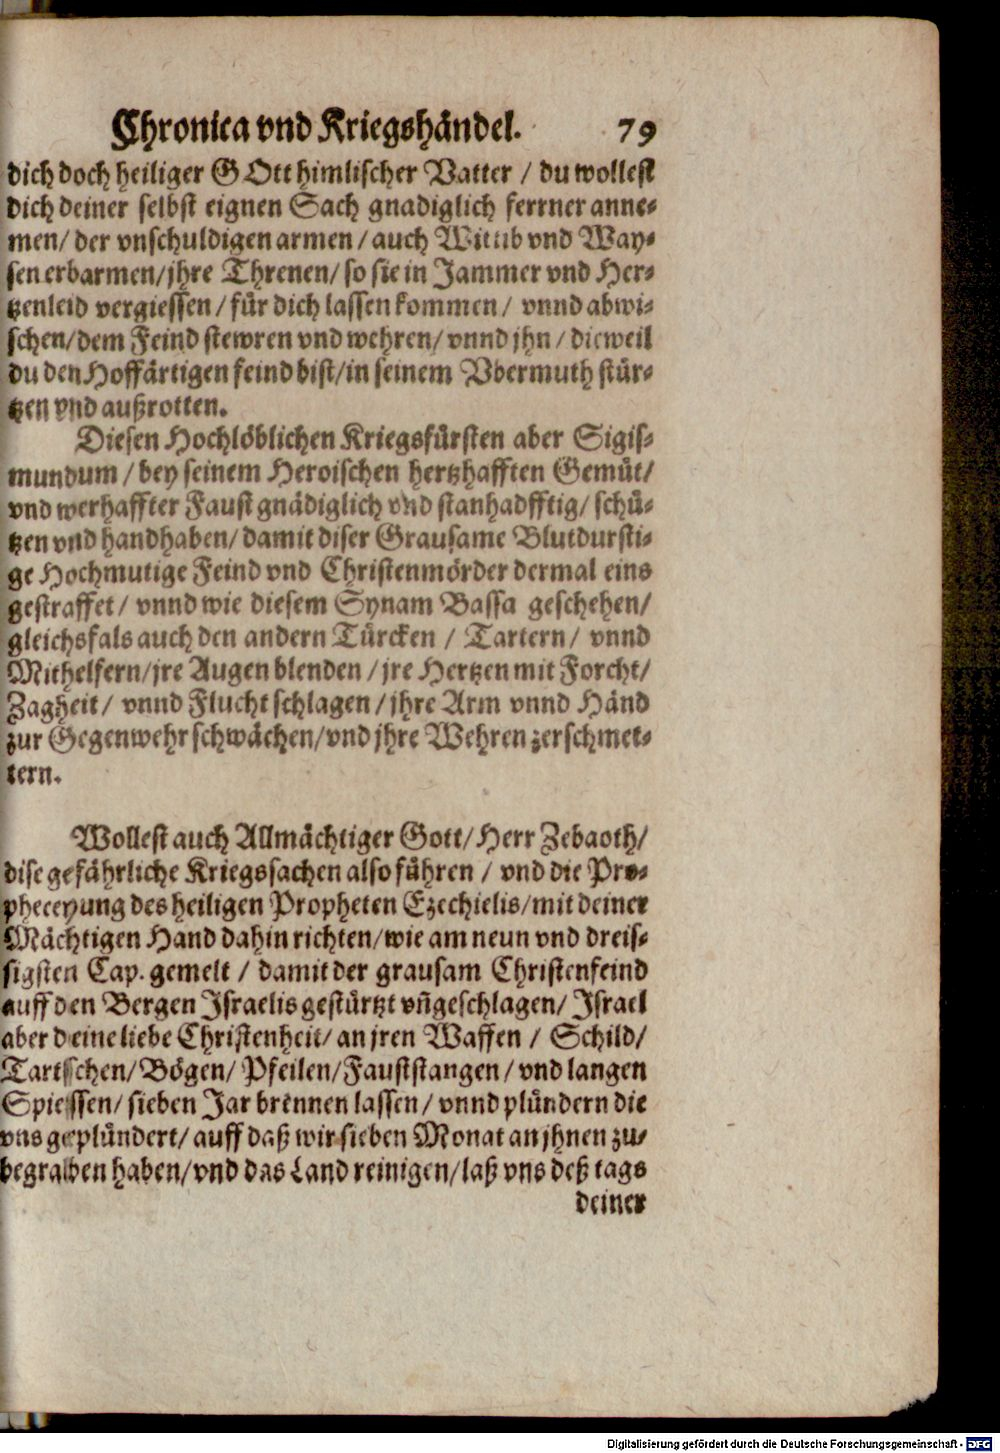 Chronica vnd Kriegshändel. 79
dich doch heiliger GOtt himlischer Vatter / du wollest
dich deiner selbst eignen Sach gnadiglich ferrner anne-
men/ der vnschuldigen armen / auch Wittib vnd Way-
sen erbarmen/ jhre Threnen/ so sie in Jammer vnd Her-
tzenleid vergiessen / für dich lassen kommen / vnnd abwi-
schen/ dem Feind stewren vnd wehren/ vnnd jhn / dieweil
du den Hoffärtigen feind bist/ in seinem Vbermuth stür-
tzen vnd außrotten.
Diesen Hochlöblichen Kriegsfürsten aber Sigis-
mundum / bey seinem Heroischen hertzhafften Gemüt/
vnd werhaffter Faust gnädiglich vnd stanhadfftig/ schü-
tzen vnd handhaben/ damit diser Grausame Blutdursti-
ge Hochmutige Feind vnd Christenmörder dermal eins
gestraffet / vnnd wie diesem Synam Bassa geschehen/
gleichsfals auch den andern Türcken / Tartern / vnnd
Mithelfern/ jre Augen blenden / jre Hertzen mit Forcht/
Zagheit / vnnd Flucht schlagen / jhre Arm vnnd Händ
zur Gegenwehr schwächen/ vnd jhre Wehren zerschmet-
tern.
Wollest auch Allmächtiger Gott/ Herr Zebaoth/
dise gefährliche Kriegssachen also führen / vnd die Pro-
pheceyung des heiligen Propheten Ezechielis/ mit deiner
Mächtigen Hand dahin richten/ wie am neun vnd dreis-
sigsten Cap. gemelt / damit der grausam Christenfeind
auff den Bergen Israelis gestürtzt vn̄ geschlagen/ Israel
aber deine liebe Christenheit/ an jren Waffen / Schild/
Tartschen/ Bögen/ Pfeilen/ Fauststangen / vnd langen
Spiessen/ sieben Jar brennen lassen / vnnd plündern die
vns geplündert/ auff daß wir sieben Monat an jhnen zu-
begraben haben/ vnd das Land reinigen/ laß vns deß tags
deiner
Digitalisierung gefördert durch die Deutsche Forschungsgemeinschaft - DFG